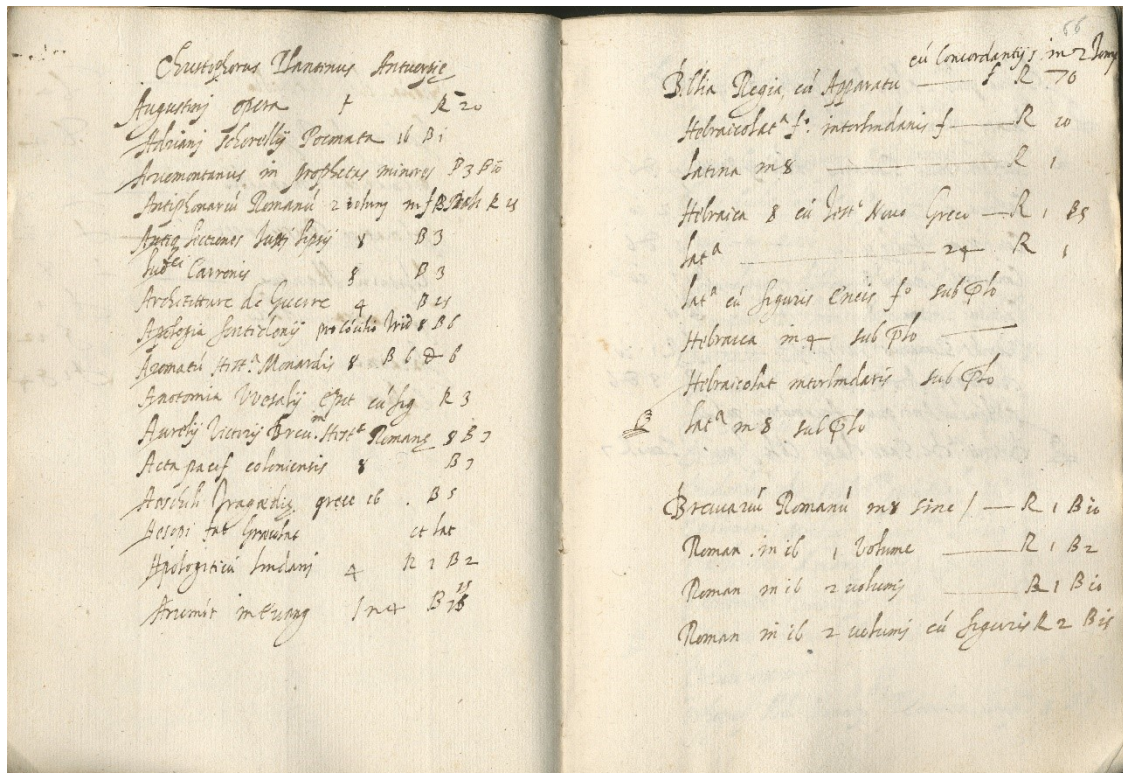 Christophorus Plantinus Antuerpię
Augustinj opera f R 20
Adrianj Poemata 16 B 1
Ariemontanus in prophetas minores B 3 B 10
Antiphonariũ Romanũ 2 volumj in f R 15
Antiq Lectiones Justi Lipsij 8 B 3
Carronis 8 B 3
Architetture de Guerre 4 B 15
Apologia 8 B 6
Aromatũ Hista Monardis 8 B 6 & 6
Anotomia Vvesalij cũ fig R 3
Aurelij Victorij Breu.m Histe Romanę 8 B 7
Acta pacif coloniensis 8 B 7
Aeschili Tragedię grece 16 . B 5
Aesopi fab et lat
Apologiticũ Lindanj 4 R 1 B 2
in euang in 4 B
66
cũ Concordantijs in 2 Tomj
Biblia Regia cũ Apparatu f R 70
Hebraicolata fo. f R 10
latina in 8 R 1
Hebraica 8 cũ Testo Nouo Greco R 1 B 5
lata 24 R 1
lata cũ figuris Eneis fo sub plo
Hebraica in 4 sub plo
Hebraicolat sub plo
lata in 8 sub plo
Breuiariũ Romanũ in 8 sine R 1 B 10
Roman in 16 1 volume R 1 B 2
Roman in 16 2 volumj R 1 B 10
Roman in 16 2 volumj cũ figuris R 2 B 15